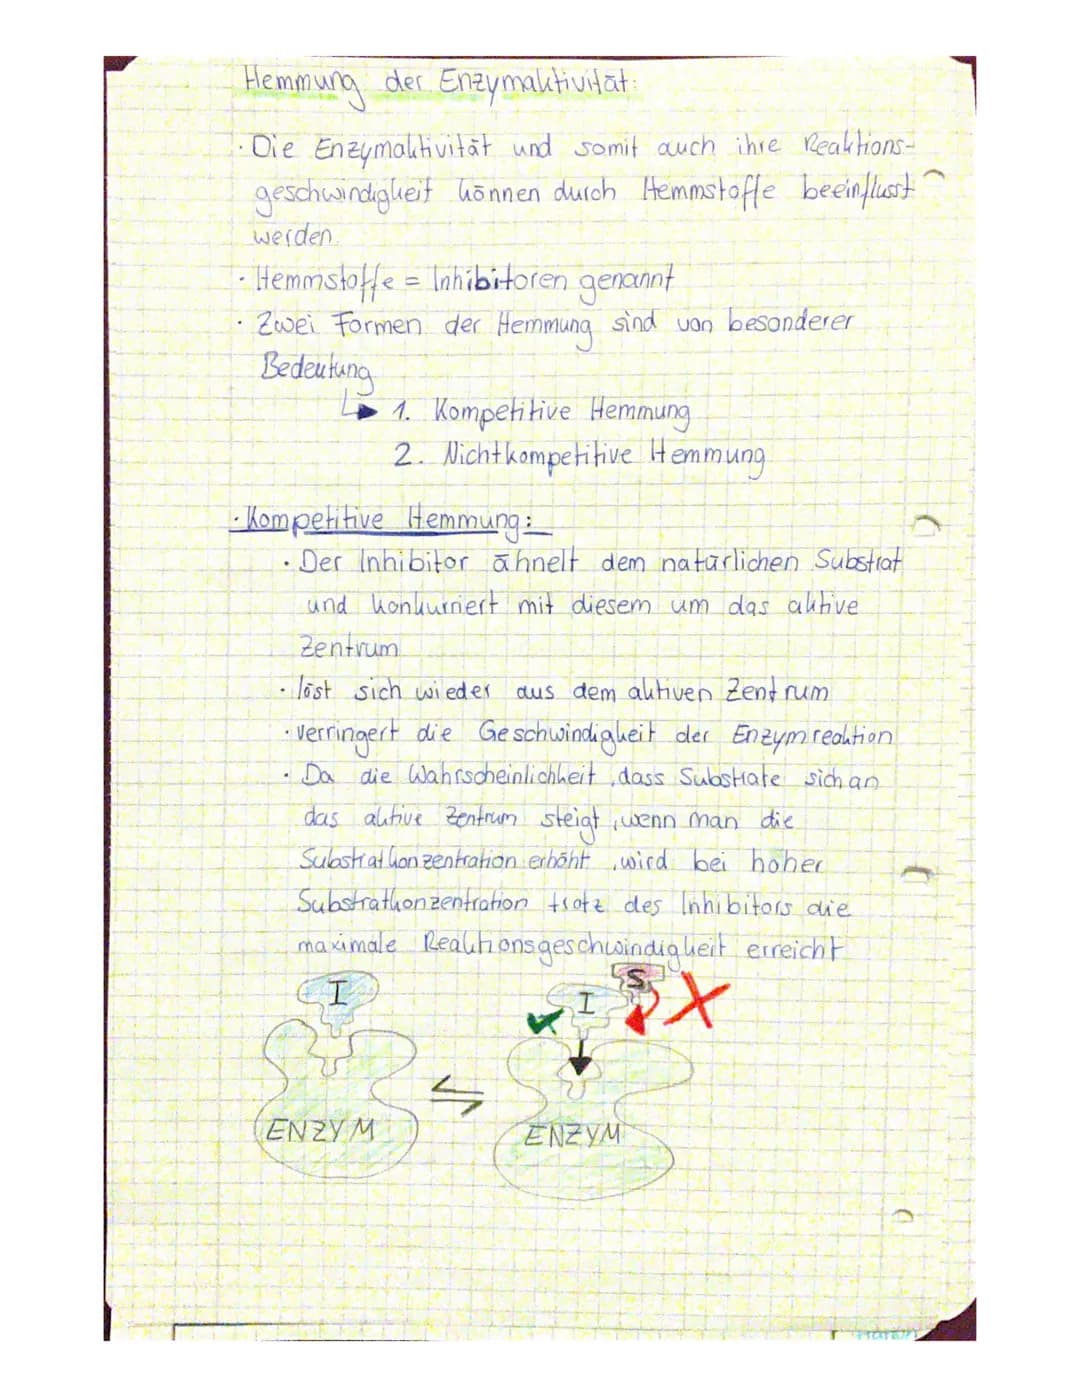 Hemmung der Enzymaktivität:
· Die Enzymaktivität und somit auch ihre Reaktions-
geschwindigkeit können durch Hemmstoffe beeinflusst
werden.
· Hemmstoffe = Inhibitoren genannt
· Zwei Formen der Hemmung sind von besonderer
Bedeutung
1. Kompetitive Hemmung
2. Nichtkompetitive Hemmung
· Kompetitive Hemmung:
· Der Inhibitor ähnelt dem natürlichen Substrat
und konkurriert mit diesem um das aktive
Zentrum
· löst sich wieder aus dem aktiven Zentrum
· verringert die Geschwindigkeit der Enzymreaktion
· Da die Wahrscheinlichkeit, dass Substrate sich an
das aktive Zentrum steigt, wenn man die
Substratkonzentration erhöht, wird bei hoher
Substratkonzentration trotz des Inhibitors die
maximale Reaktionsgeschwindigkeit erreicht
I
S
I
ENZYM
ENZYM